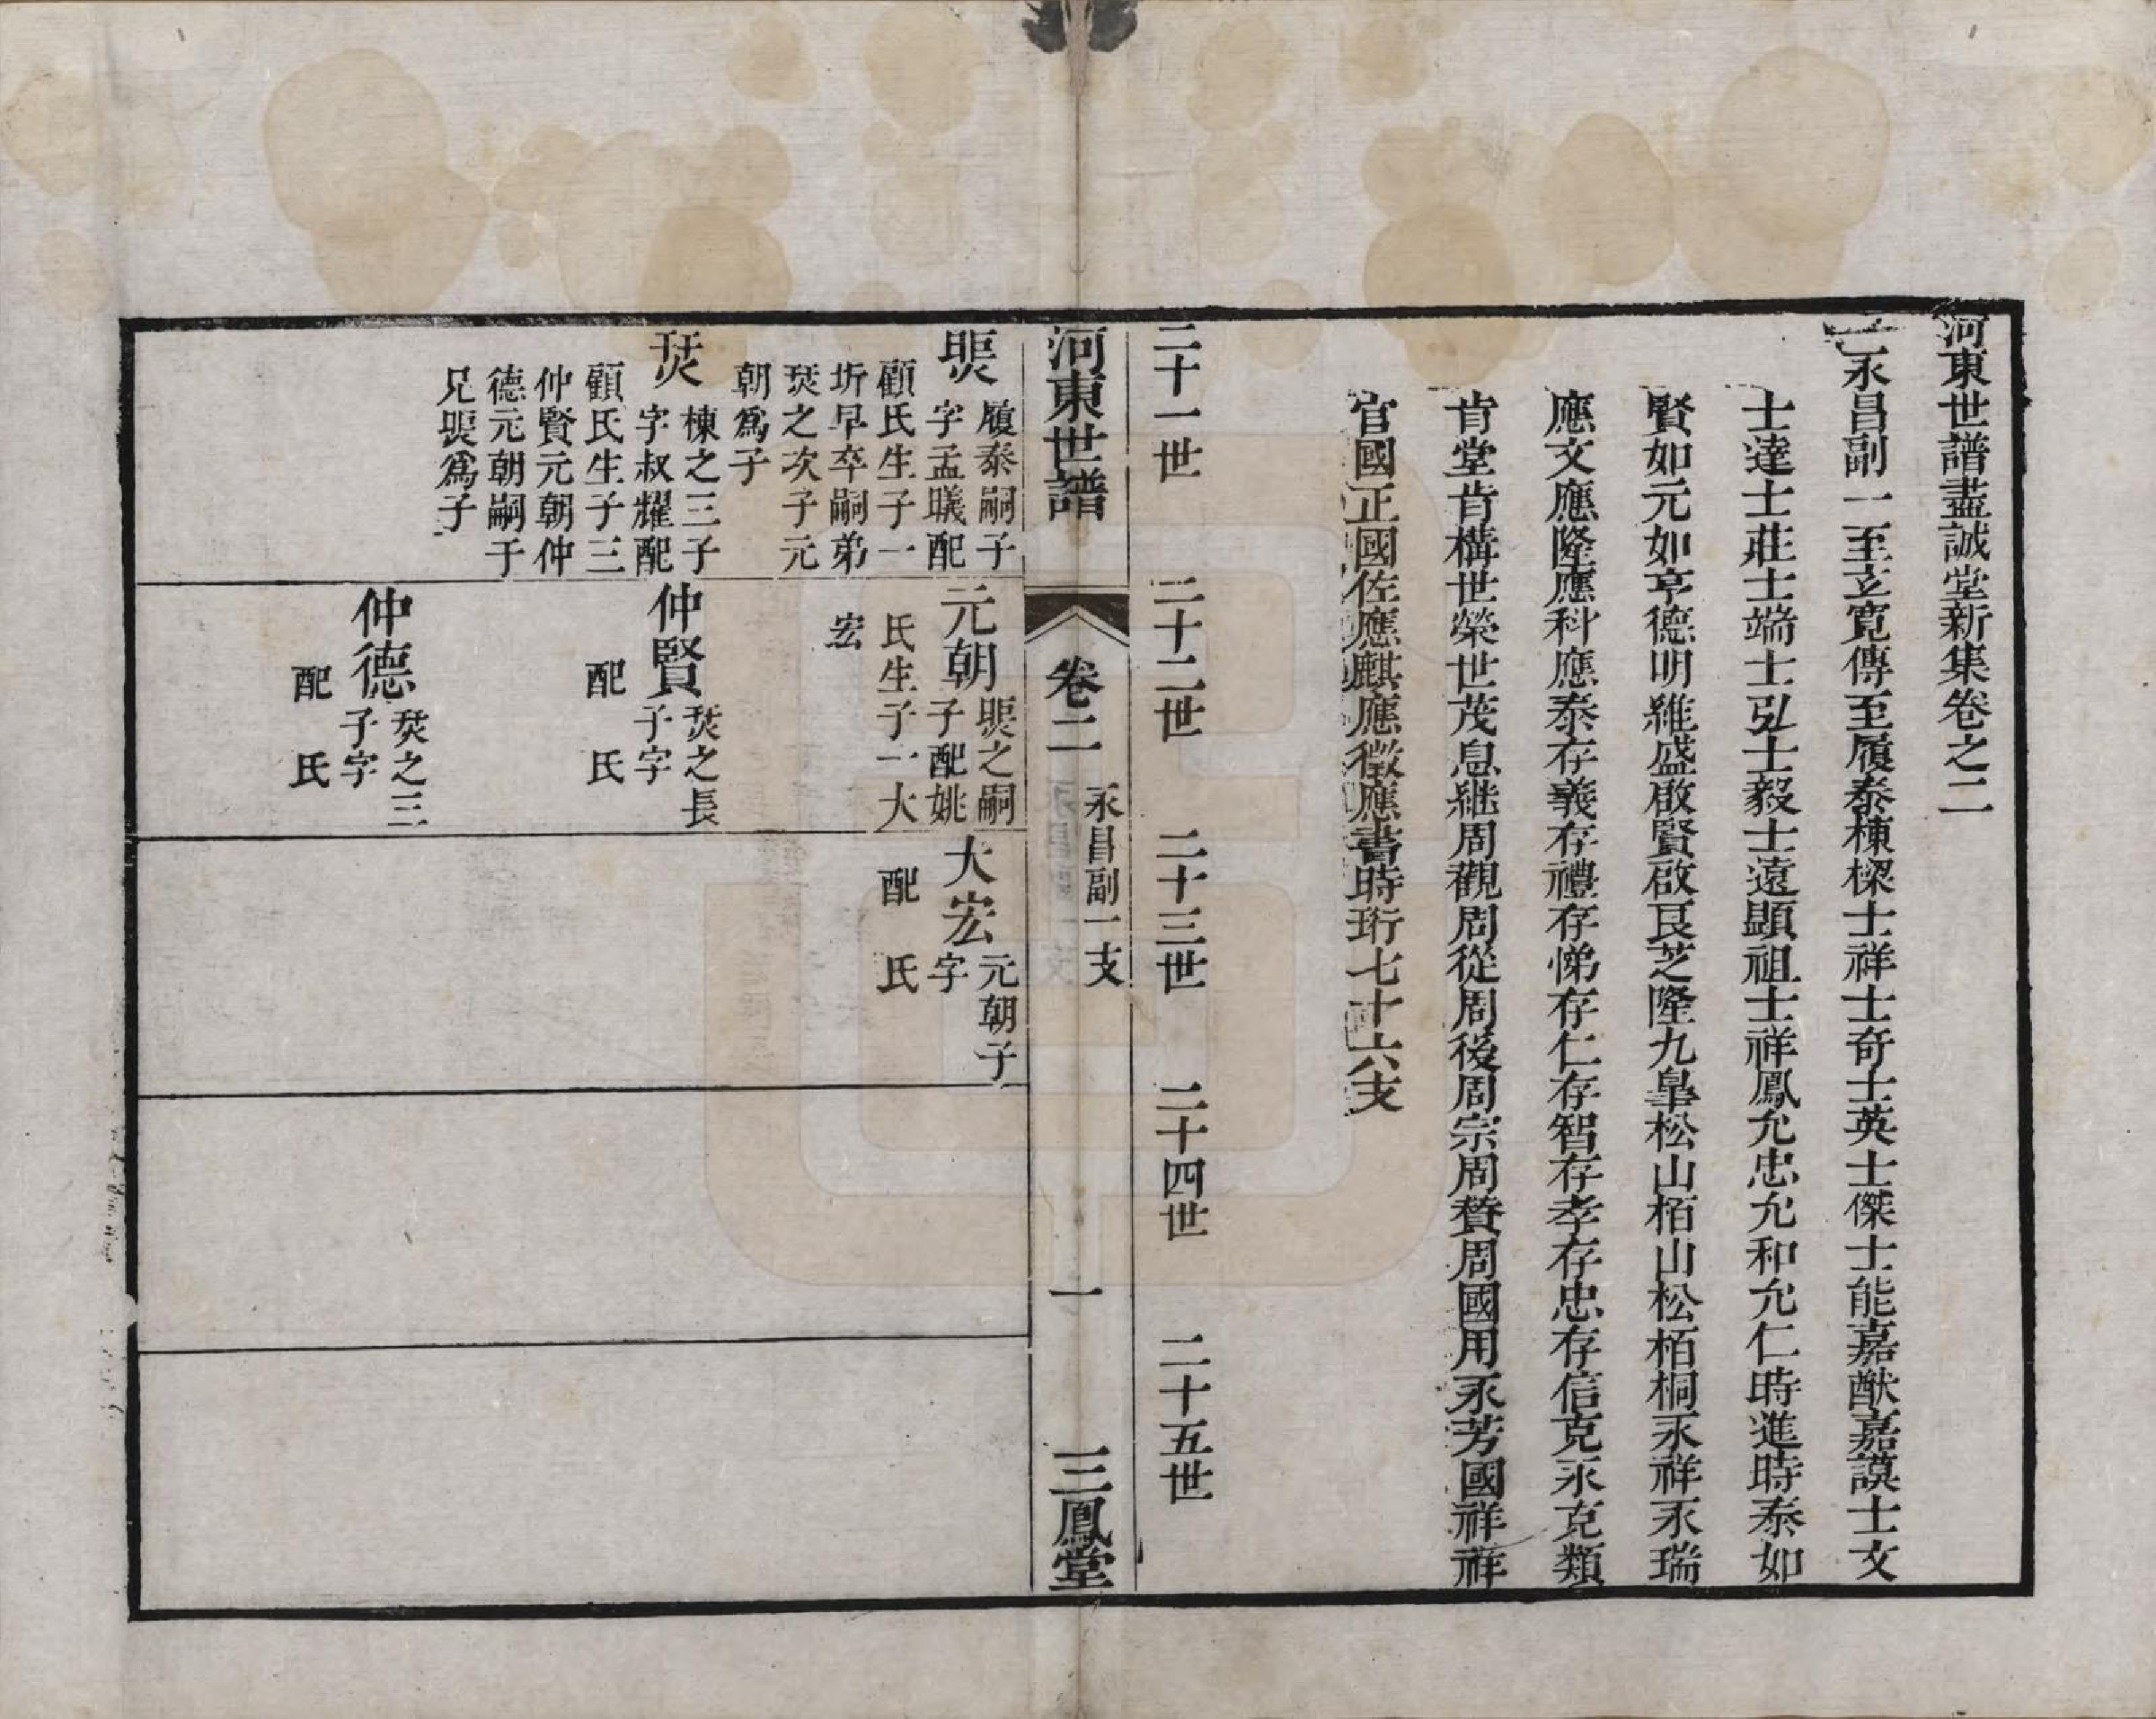 河東世譜盡誠堂新集卷之二
永昌副一至立寬傳至履泰棟樑士祥士奇士英士傑士能嘉猷嘉謨士文
士達士莊士端士弘士毅士遠顯祖士祥鳳允忠允和允仁時進時泰如
賢如元如亨德明維盛啟賢啟艮芝隆九臯松山栢山松栢桐永祥永瑞
應文應隆應科應泰存義存禮存悌存仁存智存孝存忠存信克永克類
肯堂肯構世榮世茂息継周觀周從周後周宗周賛周國用永芳國祥祥
官國正國佐應麒應徵應書時珩七十六支
二十一世　二十二世　二十三世　二十四世　二十五世
河東世譜　卷二　永昌副一支　一　三鳳堂
履泰嗣子
字孟曦配
顧氏生子一
圻早卒嗣弟
焋之次子元
朝為子
焋
棟之三子
字叔耀配
顧氏生子三
仲賢元朝仲
德元朝嗣于
兄為子
元朝
之嗣
子配姚
氏生子一大
宏
仲賢
焋之長
子字
配　氏
仲德
焋之三
子字
配　氏
大宏
元朝子
字
配　氏